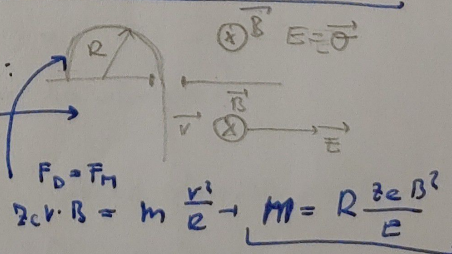 R
⊗ B⃗ E = 0⃗
B⃗
v⃗ ⊗ E⃗
F_D = F_M
zev·B = m v²/R → m = R zeB²/E